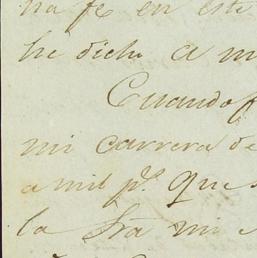 na fe en este
he dicho a m
Cuando f
mi carrera de
a mil p.s que s
la Sra mi e